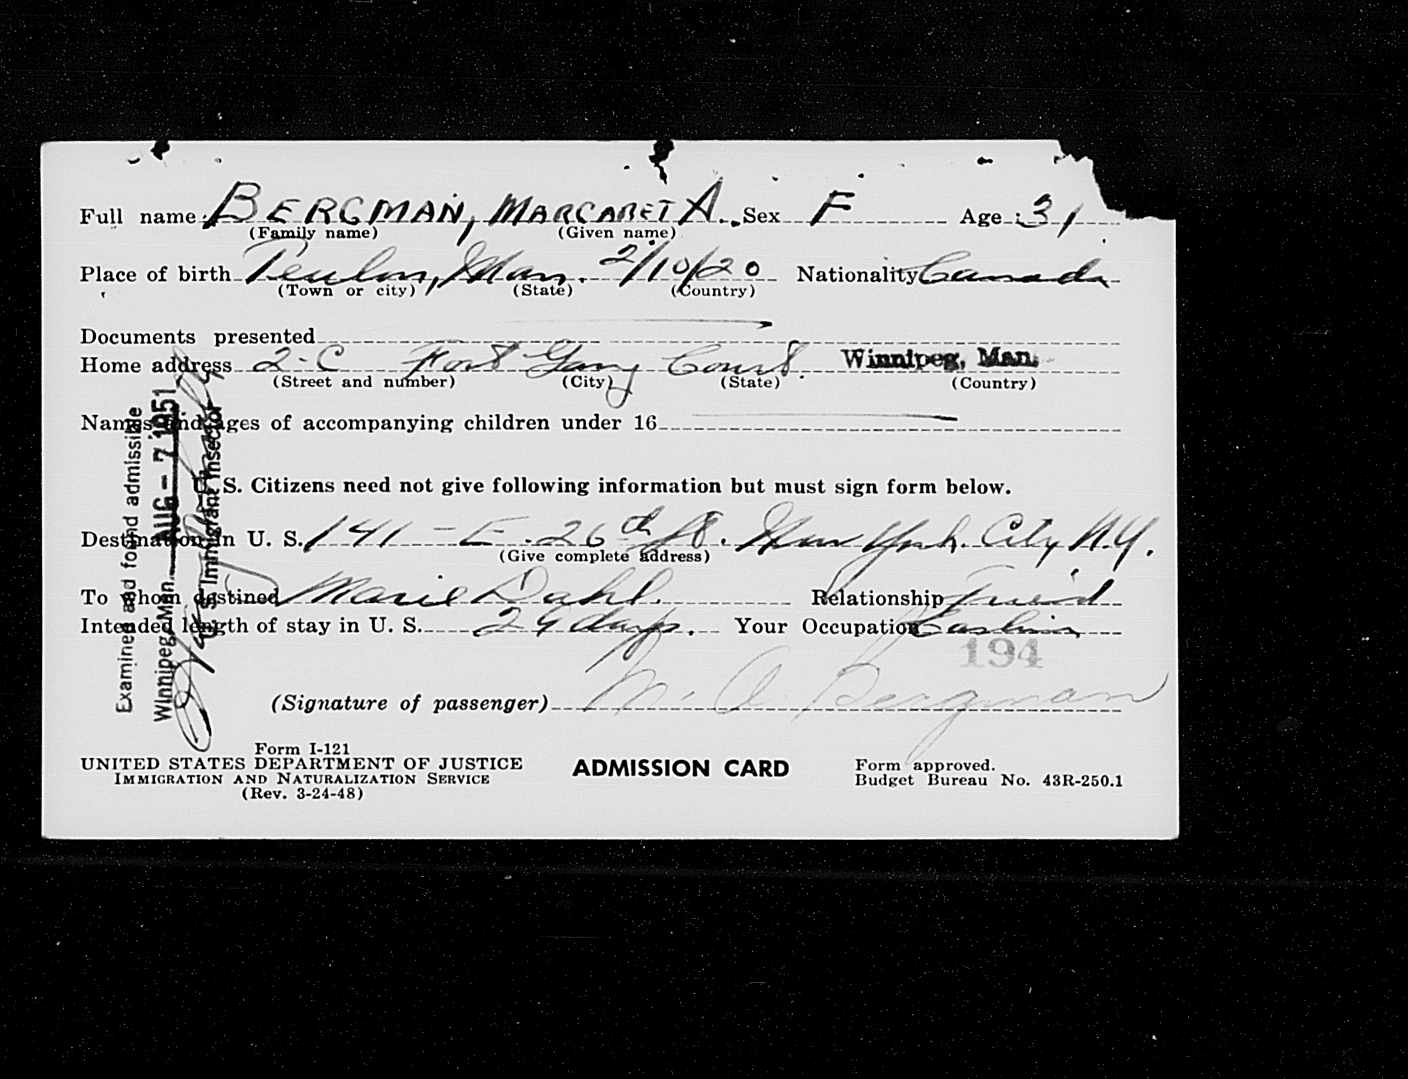 Full name BERGMAN, MARGARET A. Sex F Age 31
(Family name) (Given name)
Place of birth Teulon, Man. 2/10/20 Nationality Canada
(Town or city) (State) (Country)
Documents presented
Home address 2-C Fort Garry Court. Winnipeg, Man.
(Street and number) (City) (State) (Country)
Names and ages of accompanying children under 16
U. S. Citizens need not give following information but must sign form below.
Destination in U. S. 141 - E. 26th St. New York City N.Y.
(Give complete address)
To whom destined Marie Dahl. Relationship Friend
Intended length of stay in U. S. 24 days. Your Occupation Cashier
194
(Signature of passenger) M. A. Bergman
Form I-121
UNITED STATES DEPARTMENT OF JUSTICE
IMMIGRATION AND NATURALIZATION SERVICE
(Rev. 3-24-48)
ADMISSION CARD
Form approved.
Budget Bureau No. 43R-250.1
Examined and found admissible
Winnipeg, Man. AUG - 7 1951
U. S. Immigrant Inspector